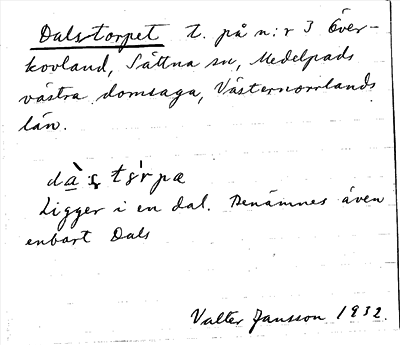 Dalstorpet t. på n:r 3 Över-
kovland, Sättna sn, Medelpads
västra domsaga, Västernorrlands
län.
Ligger i en dal. Benämnes även
enbart Dals
Valter Jansson 1932.